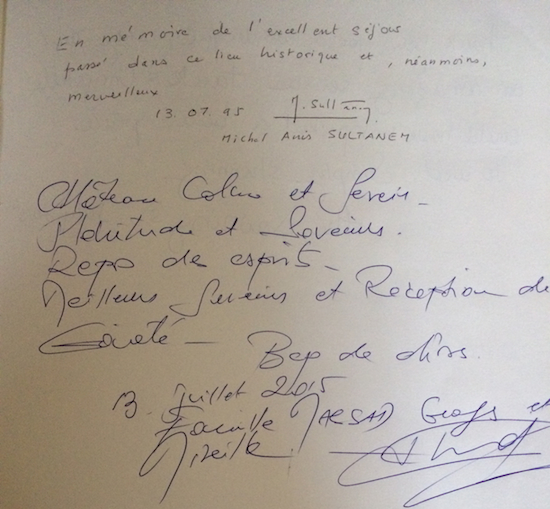 En mémoire de l'excellent séjour
passé dans ce lieu historique et, néanmoins,
merveilleux
13.07.95 M. Sultanem
Michel Anis SULTANEM
Château Calme et Serein_
Plénitude et
Repos des esprits_
Meilleurs et Réception de
_ Bep de
13. Juillet 2015
Famille et
Mireille.